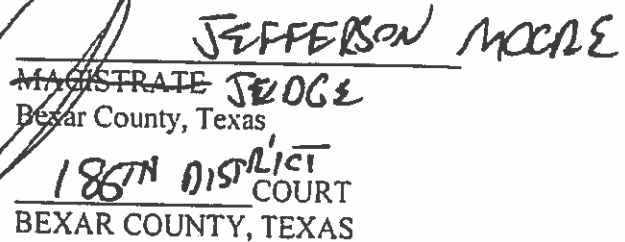 JEFFERSON MOORE
MAGISTRATE JUDGE
Bexar County, Texas
186TH DISTRICT COURT
BEXAR COUNTY, TEXAS